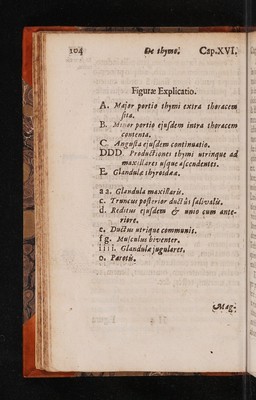 104 De thymo. Cap.XVI.
Figuræ Explicatio.
A. Major portio thymi extra thoracem
sita.
B. Minor portio ejusdem intra thoracem
contenta.
C. Angusta ejusdem continuatio.
DDD. Productiones thymi utrinque ad
maxillares usque ascendentes.
E. Glandulæ thyroidææ.
a a. Glandula maxillaris.
c. Truncus posterior ductûs salivalis.
d. Reditus ejusdem & unio cum ante-
riore.
e. Ductus utrique communis.
f g. Musculus biventer.
i i i i. Glandulæ jugulares.
o. Parotis.
Mag-